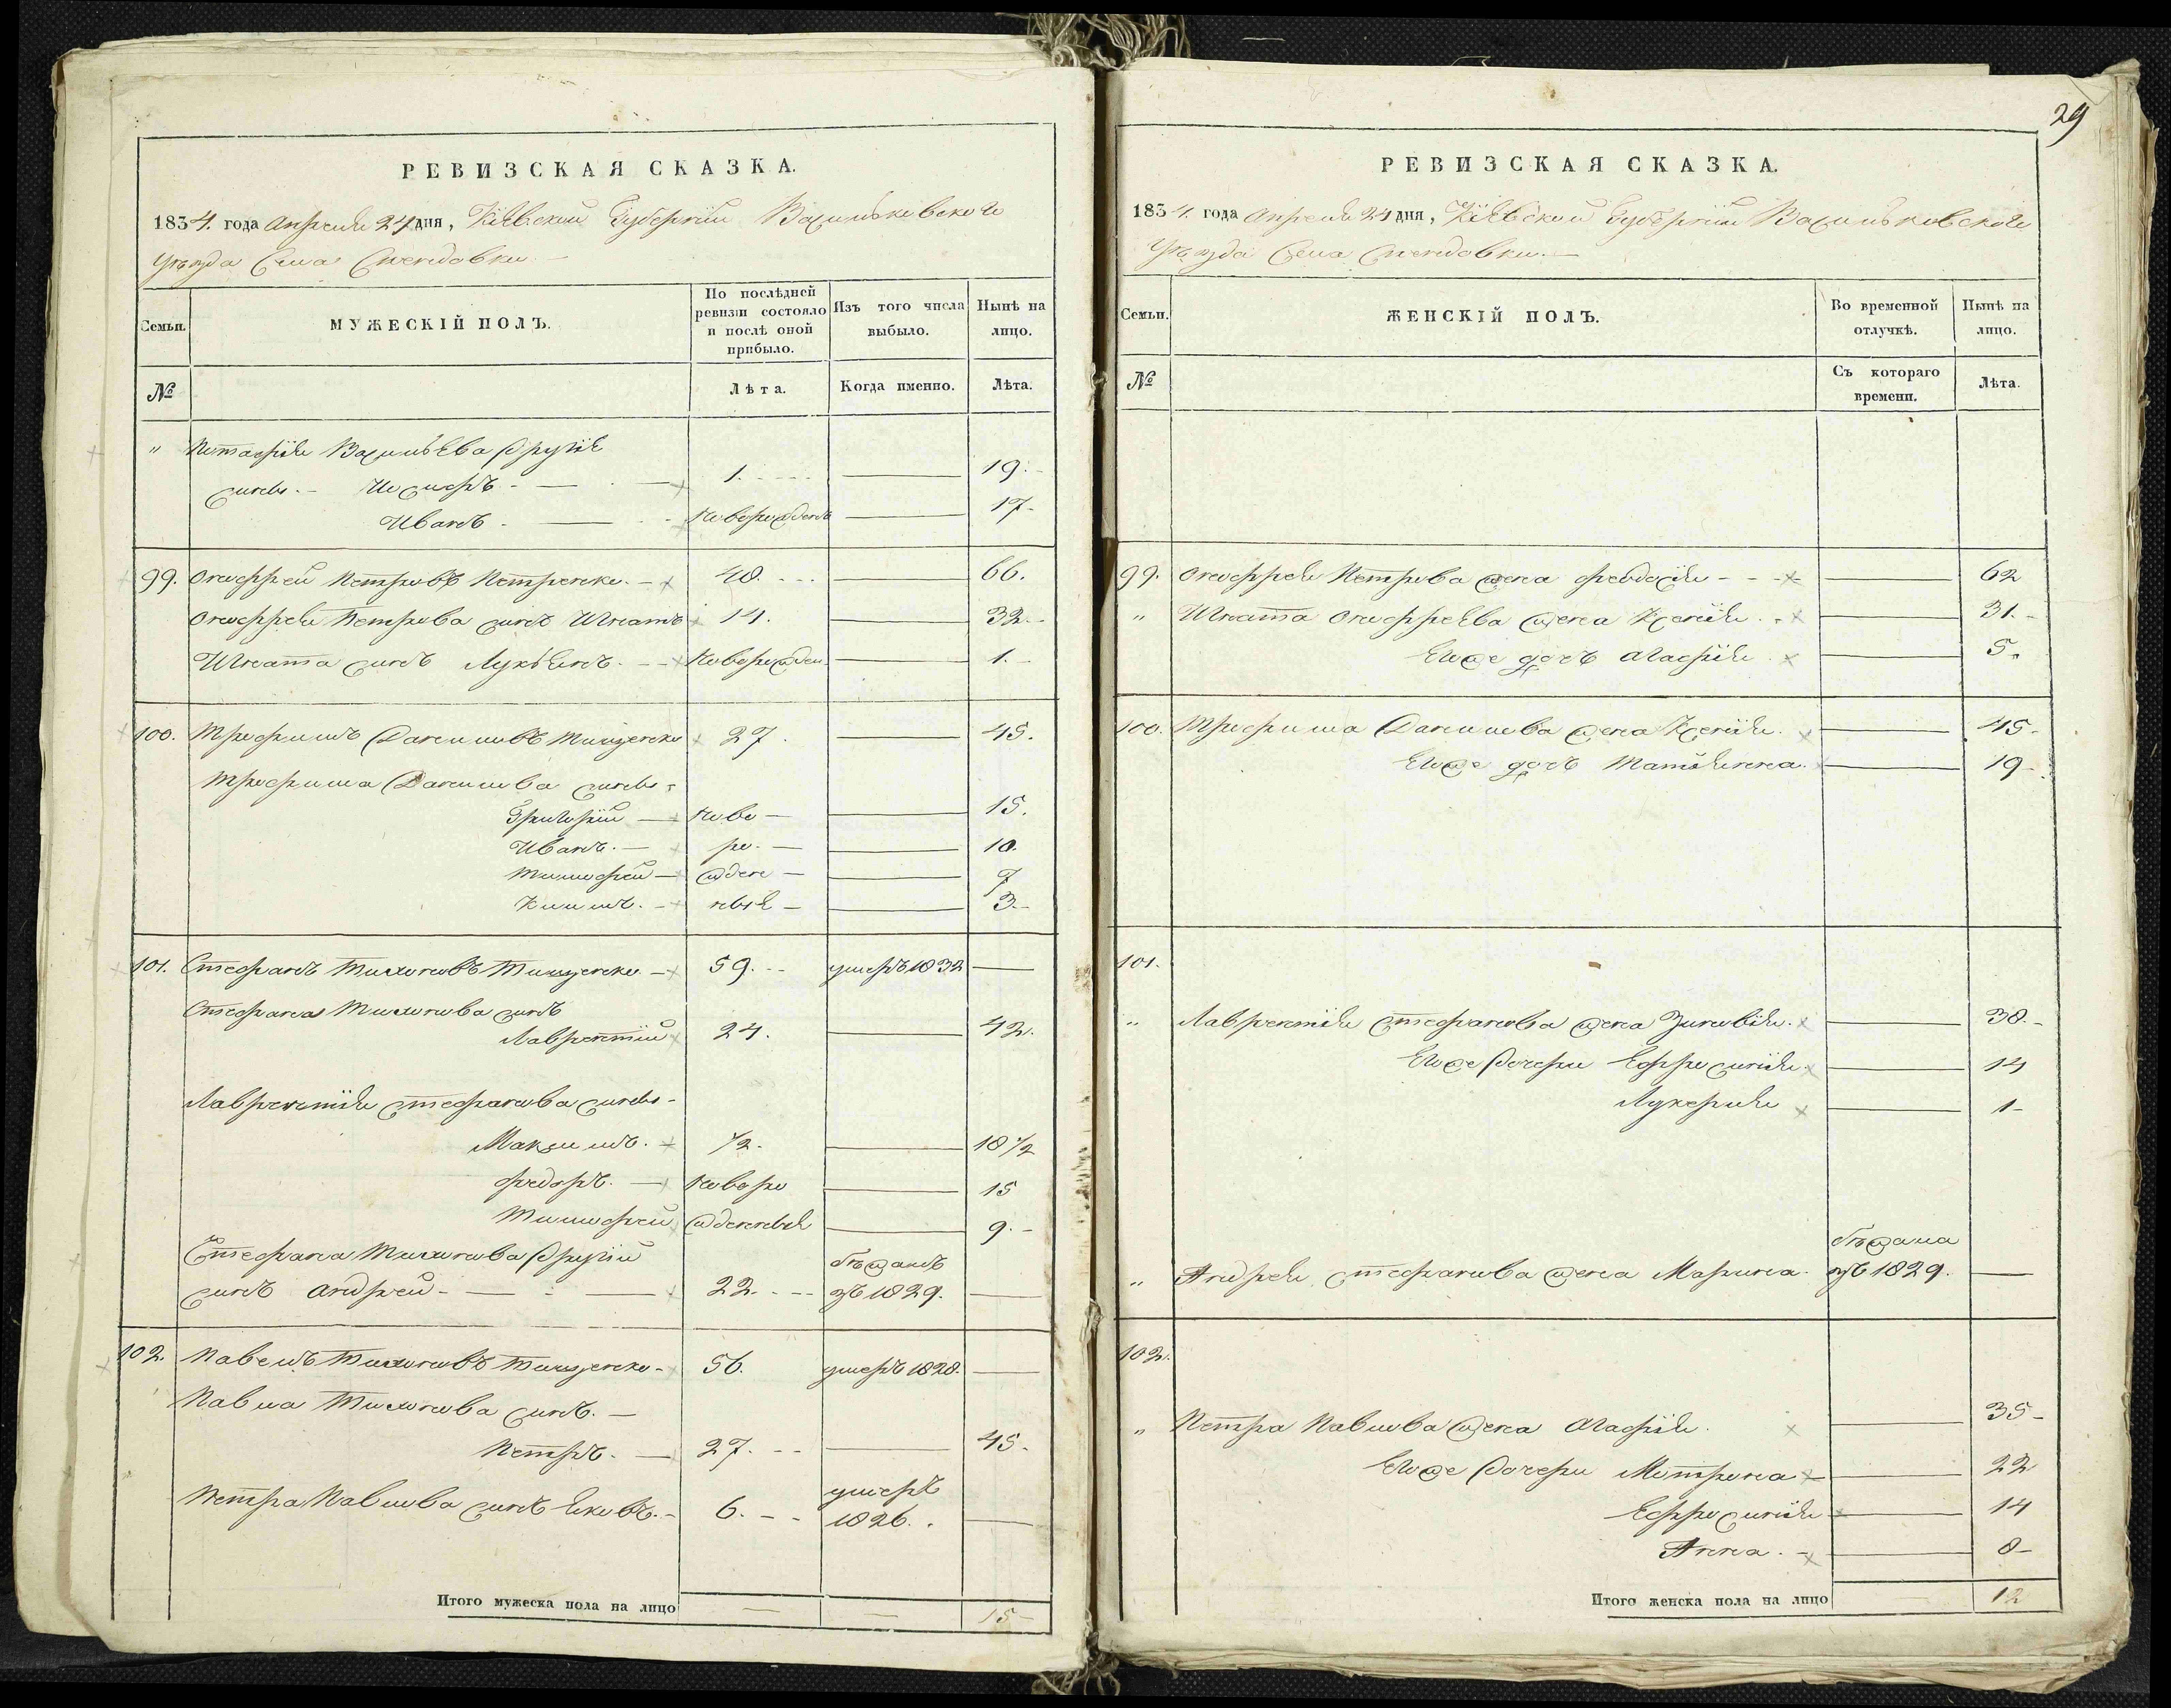 РЕВИЗСКАЯ СКАЗКА.
1834. года Апреля 24 дня, Кіевской Губерніи Васильковскаго
Уѣзда Села
Семьи.
МУЖЕСКІЙ ПОЛЪ.
По послѣдней ревизіи состояло и послѣ оной прибыло.
Изъ того числа выбыло.
Нынѣ на лицо.
№
Лѣта.
Когда именно.
Лѣта.
" Васильева другіе
сыны. - 1. 19.
Иванъ - новорожденъ 17-
99. Онофрей Петровъ Петренко - 48. 66.
Онофрея Петрова сынъ Игнатъ 14. 32.
Игната сынъ Лукьянъ. - новорожден. 1.
100. Трофимъ Даниловъ Тищенко 27. 45.
Трофима Данилова сыны -
Григорій — ново — 15.
Иванъ. — ро. — 10.
Тимофей — ждене — 7
Климъ. — ные — 3.
101. Стефанъ Тихоновъ Тищенко - 59. умеръ 1832 —
Стефана Тихонова сынъ
Лаврентій 24. 42.
Лаврентія Стефанова сыны -
Максимъ. 1/2. 18 1/2
Федоръ. — новоро 15
Тимофей жденные 9. -
Стефана Тихонова другій бѣжалъ
сынъ Андрей - 22. въ 1829. —
102. Павелъ Тихоновъ Тищенко - 56. умеръ 1828. —
Павла Тихонова сынъ. —
Петръ. — 27. - - 45.
умеръ
Петра Павлова сынъ Яковъ. - 6. - - 1826. . —
Итого мужеска пола на лицо — — 15 -
29
РЕВИЗСКАЯ СКАЗКА.
1834. года Апреля 24 дня, Кіевской Губерніи Васильковскаго
Уѣзда Села
Семьи.
ЖЕНСКІЙ ПОЛЪ.
Во временной отлучкѣ.
Нынѣ на лицо.
№
Съ котораго времени.
Лѣта.
99. Онофрея Петрова жена Феодосія - - - 62
" Игната Онофреева жена Ксенія. - 31. -
Егоже дочь Агафія. 5.
100. Трофима Данилова жена Ксенія. 45.
Егоже дочь Татьянна. 19 -
101.
" Лаврентія Стефанова жена Зиновія. 38. -
Егоже дочери Ефросинія. 14
Лукерія 1 -
бѣжала
" Андрея Стефанова жена Марина. въ 1829. —
102.
" Петра Павлова жена Агафія. 35 -
Егоже дочери Мотрона 22
Ефросинія 14
Анна. - 8 -
Итого женска пола на лицо 12